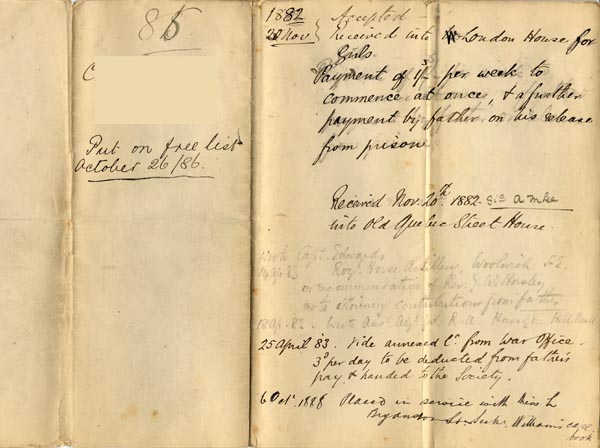 85
C
Put on free list
October 26/86.
1882 Accepted -
20 Nov. Received into W London House for
Girls
Payment of 1/- per week to
commence at once, & a further
payment by father on his release
from prison
Received Nov. 20th 1882.
into Old Quebec Street House.
Capt. Edwards
Roy. Horse Artillery, Woolwich S.E.
on recommendation of Rev. J. W. Horsley
contributions from father
R. A.
25 April '83. Vide annexed l. from War Office.
3d per day to be deducted from father's
pay & handed to the Society.
6 Oct. 1888 Placed in service with Miss L
Bryanston St. Seeke Williams case
book